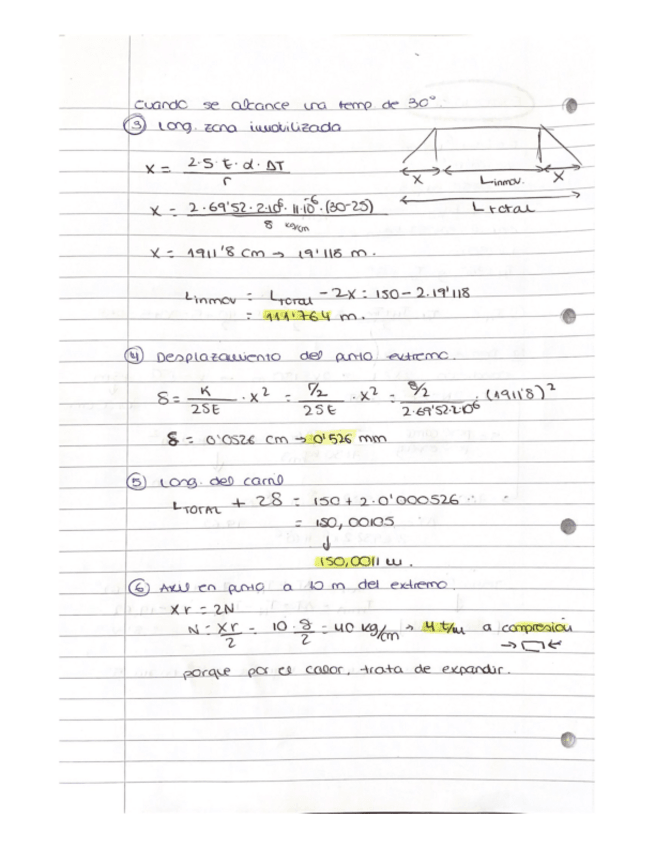 cuando se alcance una temp de 30°.
③ Long. zona inmobilizada
X = 2·S·E·α·ΔT / r
X = 2·69'52·2·10⁶·11·10⁻⁶·(30-25) / 8 kg/cm
X = 1911'8 cm → 19'118 m.
X Linmov. X
Ltotal
Linmov = LTOTAL - 2X = 150 - 2·19'118
= 111'764 m.
④ Desplazamiento del punto extremo.
δ = K / 2SE · X² = r/2 / 2SE · X² = 8/2 / 2·69'52·2·10⁶ · (1911'8)²
δ = 0'0526 cm → 0'526 mm
⑤ Long. del carril
LTOTAL + 2δ = 150 + 2·0'000526
= 150,00105
↓
150,0011 m.
⑥ Axil en punto a 10 m del extremo.
Xr = 2N
N = Xr / 2 = 10·8 / 2 = 40 kg/cm → 4 t/m a compresión
→ ▭ ←
porque por el calor, trata de expandir.